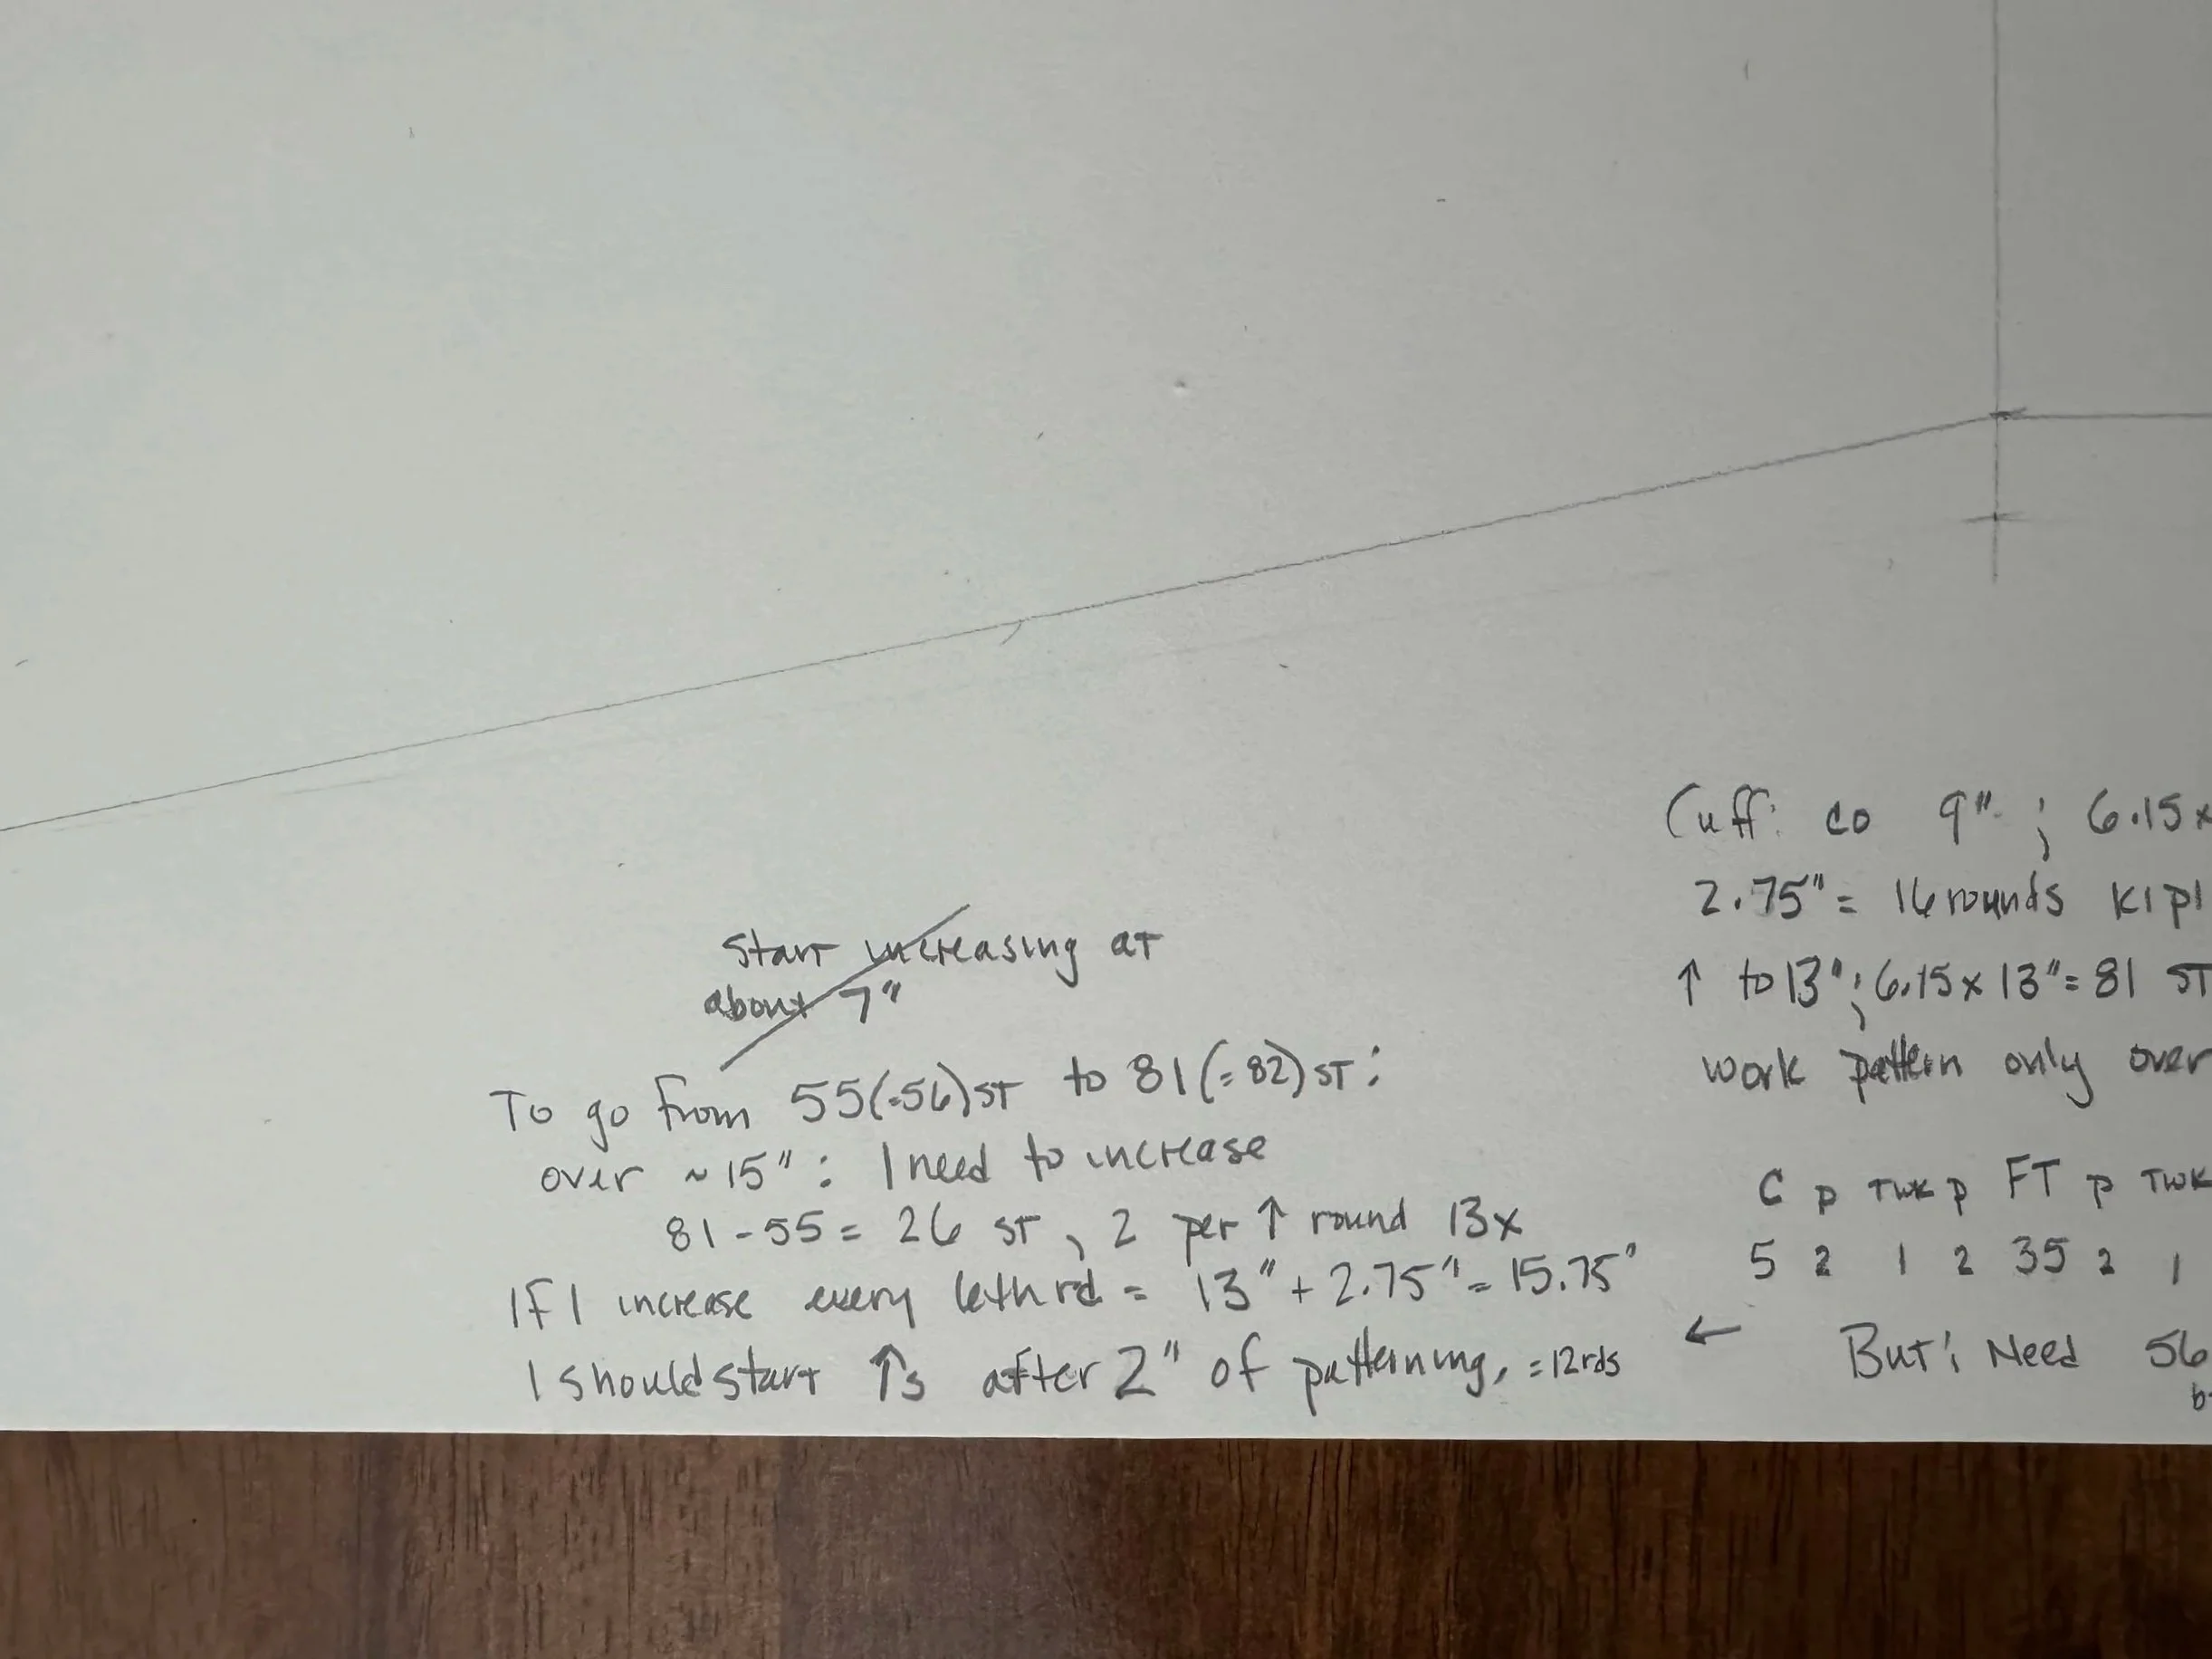 start increasing at
about 7"
To go from 55(=56)ST to 81(=82)ST:
over ~15": I need to increase
81-55= 26 ST, 2 per ↑ round 13x
If I increase every 6th rd = 13" + 2.75" = 15.75"
I should start ↑s after 2" of patterning, =12rds
Cuff: CO 9"; 6.15x
2.75" = 16 rounds k1p1
↑ to 13"; 6.15x13"=81 ST
work pattern only over
C p TWK p FT p TWK
5 2 1 2 35 2 1
← But: Need 56